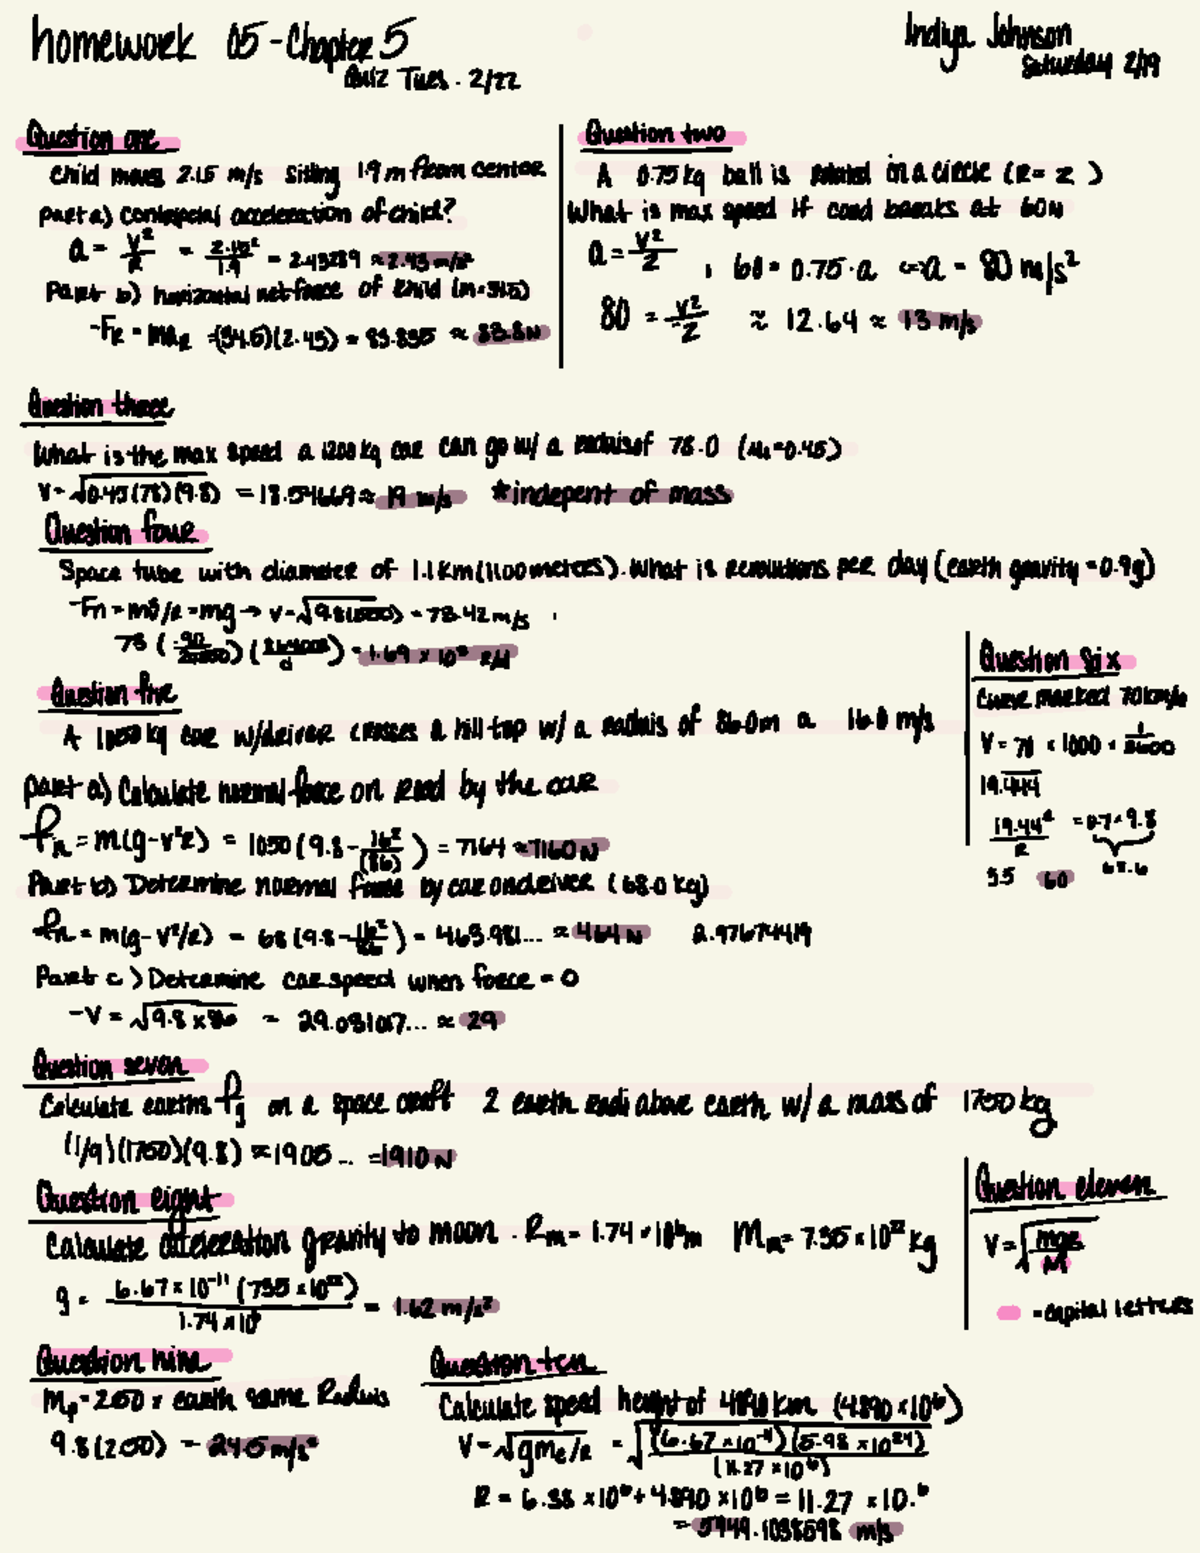 homework 05 - Chapter 5
Quiz Tues. 2/22
Indiya Johnson
Saturday 2/19
Question one
Child moves 2.15 m/s sitting 1.9 m from center
Part a) centripetal acceleration of child?
a = V²/R = 2.15²/1.9 = 2.43289 ≈ 2.43 m/s²
Part b) horizontal net force of child (m=34.5)
-FR = maR =(34.5)(2.43) = 83.835 ≈ 83.8N
Question two
A 0.75 kg ball is rotated in a circle (R= 2 )
What is max speed if cord breaks at 60N
a = V²/2 , 60 = 0.75·a ⇔ a = 80 m/s²
80 = V²/2 ≈ 12.64 ≈ 13 m/s
Question three
What is the max speed a 1200 kg car can go w/ a radius of 78.0 (Ms=0.45)
V = √0.45(78)(9.8) = 18.54669 ≈ 19 m/s *indepent of mass
Question four
Space tube with diameter of 1.1 Km (1100 meters). What is revolutions per day (earth gravity = 0.9g)
-Fn = mv²/R = mg → V = = 73.42 m/s
= 1.69 × 10³ R/d
Question five
A 1050 kg car w/driver crosses a hill top w/ a radius of 86.0m a 16.0 m/s
Part a) Calculate normal force on road by the car
Fn = m(g-v²R) = 1050 (9.8 - 16²/(86)) = 7164 ≈ 7160 N
Part b) Determine normal force by car on driver (68.0 kg)
Fn = m(g-v²/R) = 68 (9.8 - 16²/86) = 463.981... ≈ 464 N 2.97674419
Part c) Determine car speed when force = 0
-V = √9.8 x 86 = 29.031017... ≈ 29
Question six
Curve marked 70km/h
V = 70 × 1000 × 1/3600
19.444
19.44²/R = 0.7 × 9.8
55 60 68.6
Question seven
Calculate earths Fg on a space craft 2 earth radii above earth w/ a mass of 1750 kg
(1/9)(1750)(9.8) ≈ 1905... = 1910 N
Question eight
Calculate acceleration gravity to moon. Rm = 1.74 × 10⁶m Mm = 7.35 × 10²² kg
g = 6.67 × 10⁻¹¹ (7.35 × 10²²)/1.74 × 10⁶ = 1.62 m/s²
Question nine
Mp = 2.50 × earth same Radius
9.8 (2.50) = 24.5 m/s²
Question ten
Calculate speed height of 4890 km (4.890 × 10⁶)
V = √gme/R = √(6.67 × 10⁻¹¹)(5.98 × 10²⁴)/(11.27 × 10⁶)
R = 6.38 × 10⁶ + 4.890 × 10⁶ = 11.27 × 10.⁶
= 5949.1038598 m/s
Question eleven
V = √mgR/M
= capital letters